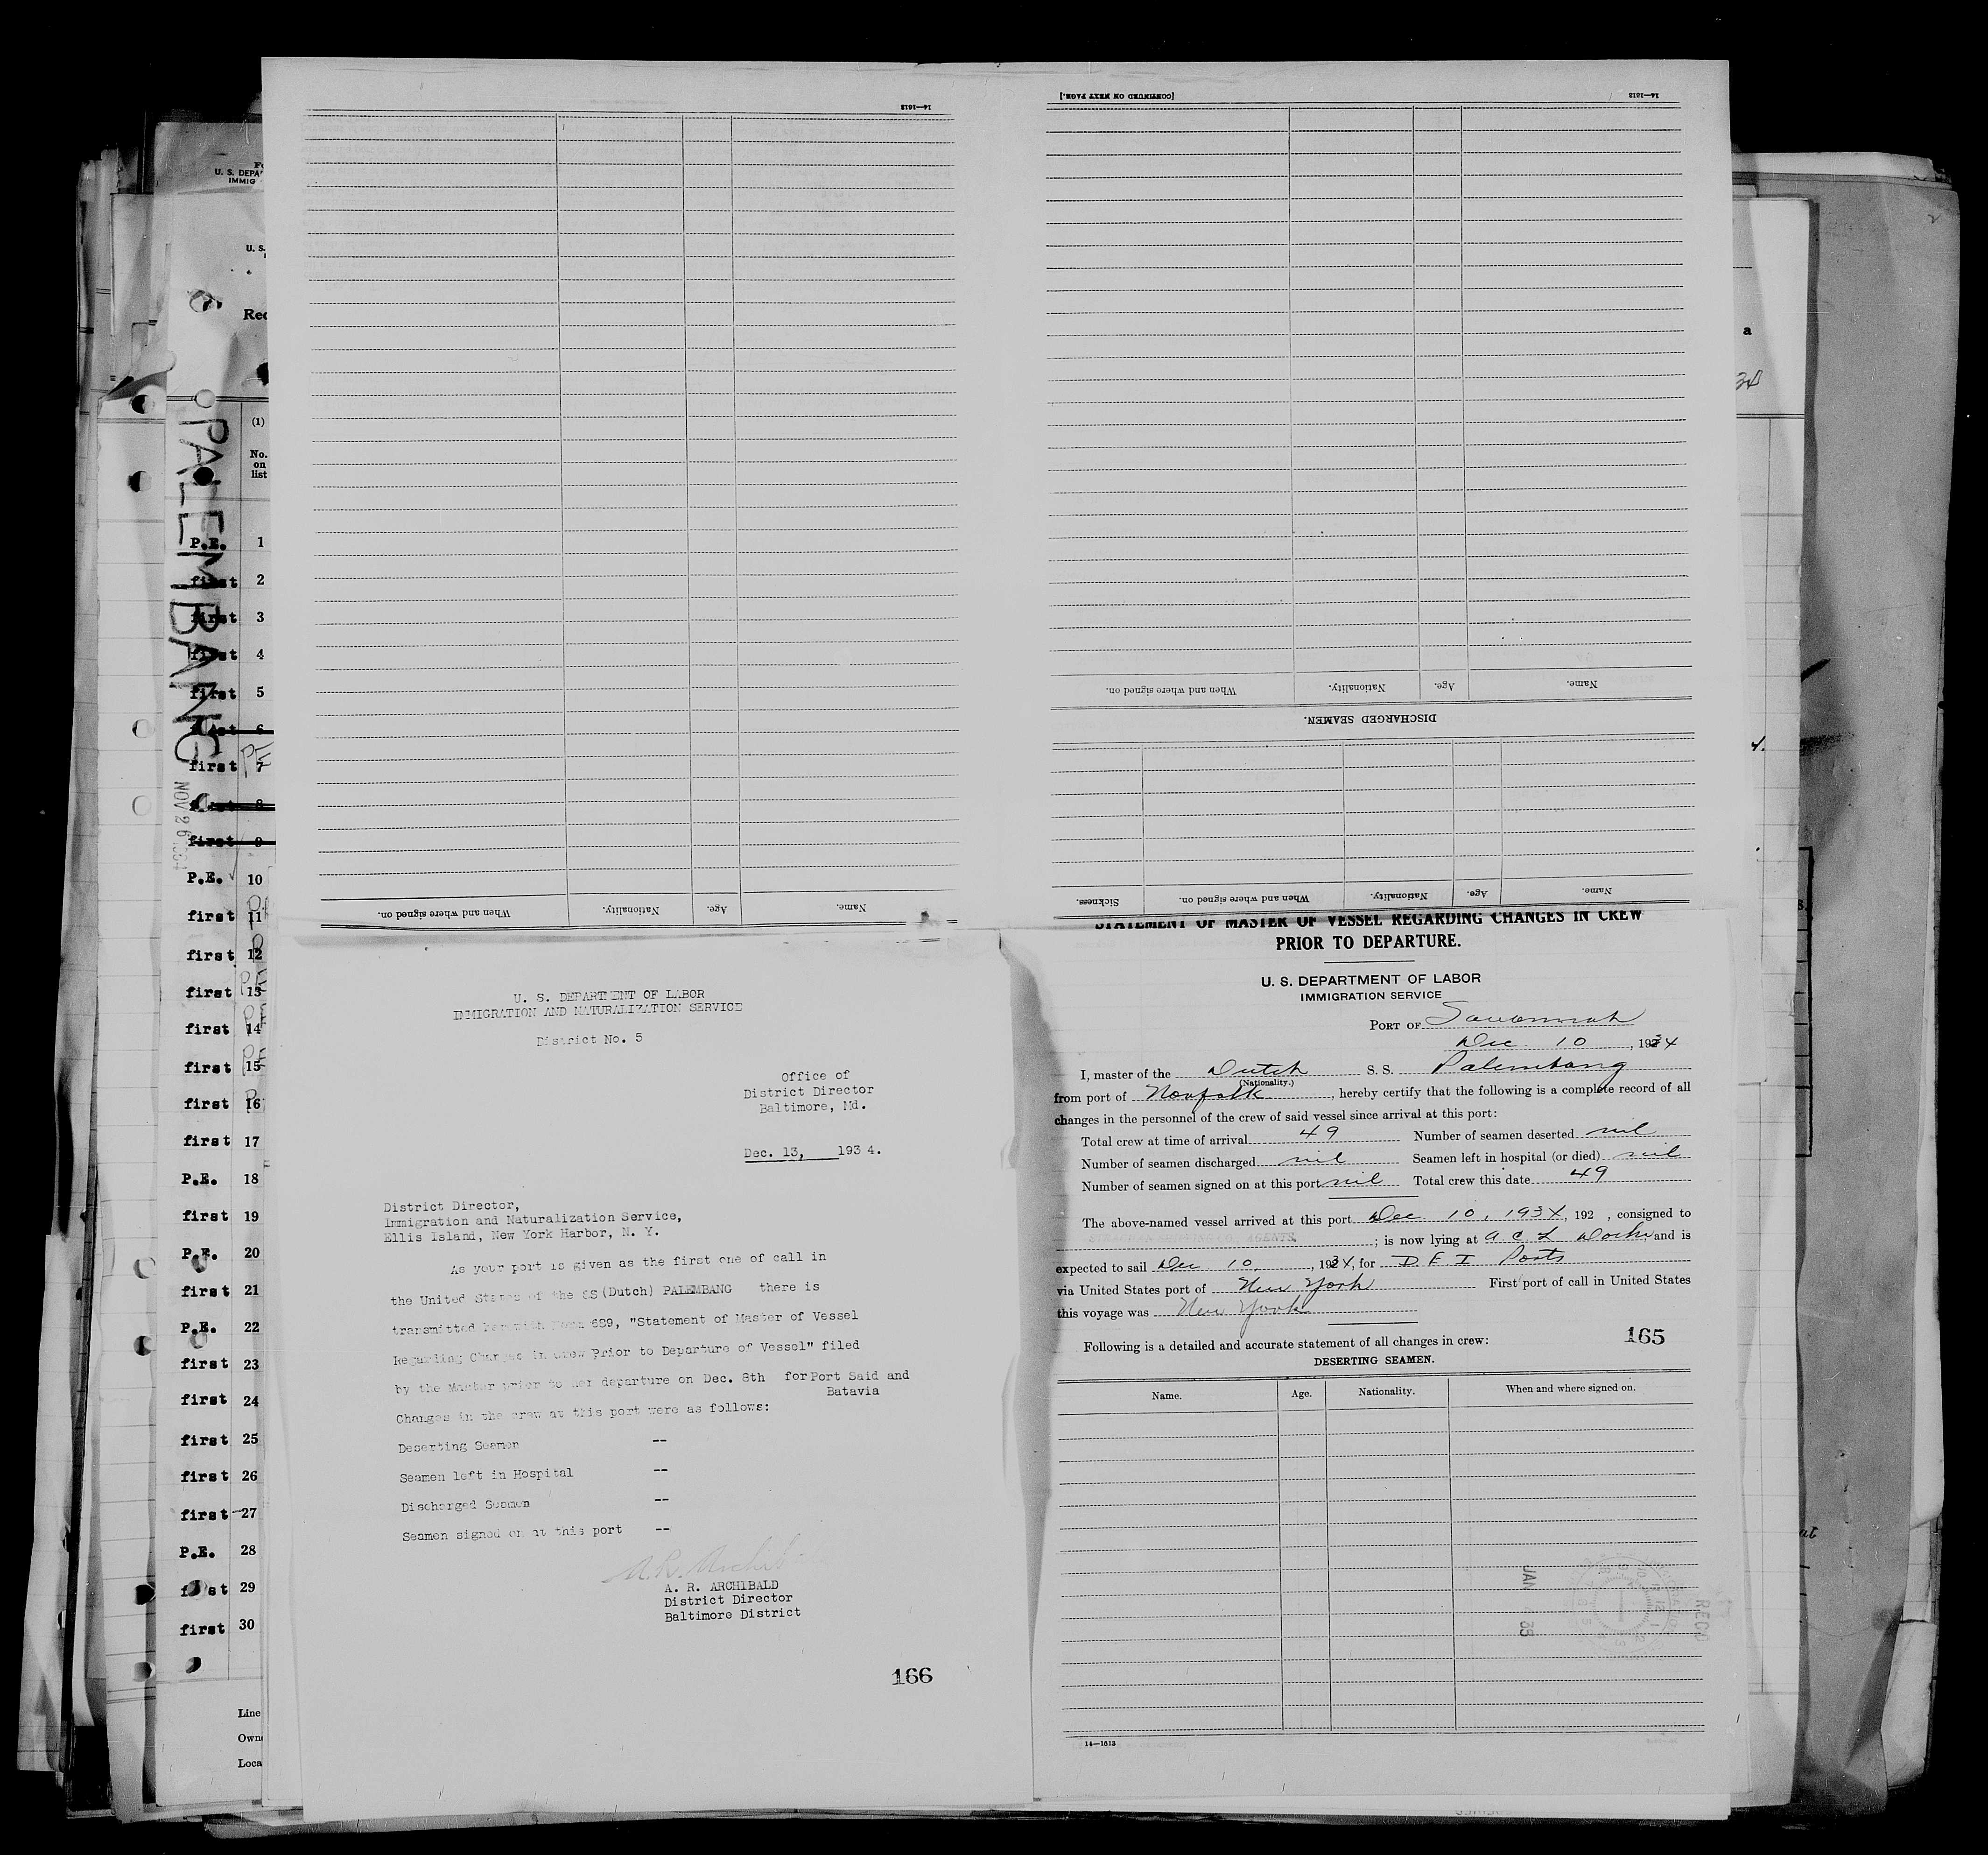 14—1613
[CONTINUED ON NEXT PAGE.]
14—1613
When and where signed on.
Nationality.
Age.
Name.
DISCHARGED SEAMEN.
Sickness.
When and where signed on.
Nationality.
Age.
Name.
When and where signed on.
Nationality.
Age.
Name.
U. S.
Rec
PALEMBANG
NOV 26
(1)
No.
on
list
P.E. 1
first 2
first 3
first 4
first 5
first 6
first 7
first 8
first 9
P.E. 10
first 11
first 12
first 13
first 14
first 15
first 16
first 17
P.E. 18
first 19
P.E. 20
first 21
P.E. 22
first 23
first 24
first 25
first 26
first 27
P.E. 28
first 29
first 30
Line
Own
Loca
U. S. DEPARTMENT OF LABOR
IMMIGRATION AND NATURALIZATION SERVICE
District No. 5
Office of
District Director
Baltimore, Md.
Dec. 13, 1934.
District Director,
Immigration and Naturalization Service,
Ellis Island, New York Harbor, N. Y.
As your port is given as the first one of call in
the United States of the SS (Dutch) PALEMBANG there is
transmitted herewith Form 689, "Statement of Master of Vessel
Regarding Changes in Crew Prior to Departure of Vessel" filed
by the Master prior to her departure on Dec. 8th for Port Said and
Batavia
Changes in the crew at this port were as follows:
Deserting Seamen --
Seamen left in Hospital --
Discharged Seamen --
Seamen signed on at this port --
A. R. Archibald
A. R. ARCHIBALD
District Director
Baltimore District
166
STATEMENT OF MASTER OF VESSEL REGARDING CHANGES IN CREW
PRIOR TO DEPARTURE.
U. S. DEPARTMENT OF LABOR
IMMIGRATION SERVICE
PORT OF Savannah
Dec 10, 1934
I, master of the Dutch S. S. Palembang
(Nationality.)
from port of Norfolk, hereby certify that the following is a complete record of all
changes in the personnel of the crew of said vessel since arrival at this port:
Total crew at time of arrival 49 Number of seamen deserted nil
Number of seamen discharged nil Seamen left in hospital (or died) nil
Number of seamen signed on at this port nil Total crew this date 49
The above-named vessel arrived at this port Dec 10, 1934, 192 , consigned to
STRACHAN SHIPPING CO., AGENTS. ; is now lying at A. C. L Docks and is
expected to sail Dec 10, 1934, for D E I Ports
via United States port of New York First port of call in United States
this voyage was New York
Following is a detailed and accurate statement of all changes in crew:
165
DESERTING SEAMEN.
Name. Age. Nationality. When and where signed on.
JAN 35
RECD
14—1613